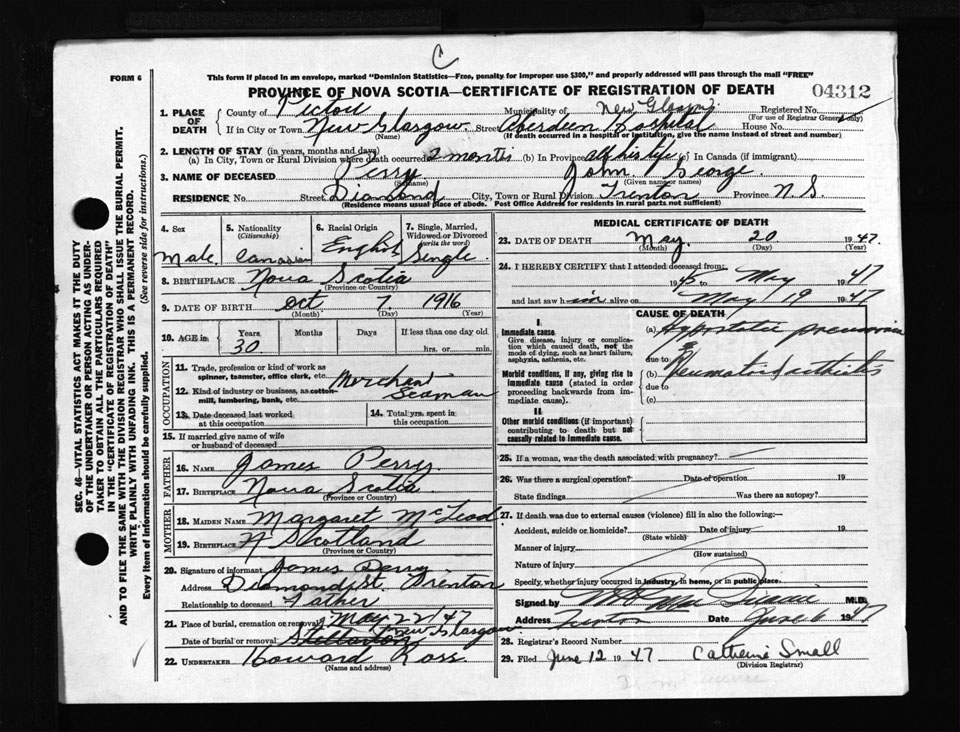 C
FORM 6
This form if placed in an envelope, marked "Dominion Statistics—Free, penalty for improper use $300," and properly addressed will pass through the mail "FREE"
PROVINCE OF NOVA SCOTIA—CERTIFICATE OF REGISTRATION OF DEATH
04312
1. PLACE OF DEATH
County of Pictou Municipality of New Glasgow Registered No.
(For use of Registrar General only)
If in City or Town New Glasgow. Street Aberdeen Hospital House No.
(Name) (If death occurred in a hospital or institution, give the name instead of street and number)
2. LENGTH OF STAY (in years, months and days)
(a) In City, Town or Rural Division where death occurred 2 months (b) In Province all his life (c) In Canada (if immigrant)
3. NAME OF DECEASED Perry John George.
(Surname) (Given name or names)
RESIDENCE No. Street Diamond City, Town or Rural Division Trenton Province N.S.
(Residence means usual place of abode. Post Office Address for residents in rural parts not sufficient)
SEC. 46—VITAL STATISTICS ACT MAKES IT THE DUTY
OF THE UNDERTAKER OR PERSON ACTING AS UNDER-
TAKER TO OBTAIN ALL THE PARTICULARS REQUIRED
IN THE "CERTIFICATE OF REGISTRATION OF DEATH"
AND TO FILE THE SAME WITH THE DIVISION REGISTRAR WHO SHALL ISSUE THE BURIAL PERMIT.
WRITE PLAINLY WITH UNFADING INK. THIS IS A PERMANENT RECORD.
Every item of Information should be carefully supplied. (See reverse side for instructions.)
4. Sex
Male
5. Nationality
(Citizenship)
Canadian
6. Racial Origin
English
7. Single, Married, Widowed or Divorced
(write the word)
Single
8. BIRTHPLACE Nova Scotia
(Province or Country)
9. DATE OF BIRTH Oct 7. 1916
(Month) (Day) (Year)
10. AGE in Years Months Days If less than one day old
30 hrs. or min.
OCCUPATION
11. Trade, profession or kind of work as
spinner, teamster, office clerk, etc. Merchant
12. Kind of industry or business, as cotton-
mill, lumbering, bank, etc. Seaman
13. Date deceased last worked
at this occupation
14. Total yrs. spent in
this occupation
15. If married give name of wife
or husband of deceased
FATHER
16. NAME James Perry.
17. BIRTHPLACE Nova Scotia
(Province or Country)
MOTHER
18. MAIDEN NAME Margaret McLeod
19. BIRTHPLACE N Shotland
(Province or Country)
20. Signature of informant James Perry
Address Diamond St. Trenton
Relationship to deceased Father
21. Place of burial, cremation or removal May 22/47
New Glasgow
Date of burial or removal Stellarton
22. UNDERTAKER Howard Ross.
(Name and address)
MEDICAL CERTIFICATE OF DEATH
23. DATE OF DEATH May 20 1947.
(Month) (Day) (Year)
24. I HEREBY CERTIFY that I attended deceased from:
1945 to May 1947
and last saw him alive on May 19 1947
CAUSE OF DEATH
I.
Immediate cause
Give disease, injury or complica-
tion which caused death, not the
mode of dying, such as heart failure,
asphyxia, asthenia, etc.
(a) Hypostatic pneumonia
due to
Morbid conditions, if any, giving rise to
immediate cause (stated in order
proceeding backwards from im-
mediate cause).
(b) Rheumatoid arthritis
due to
(c)
II
Other morbid conditions (if important)
contributing to death but not
causally related to immediate cause.
25. If a woman, was the death associated with pregnancy?
26. Was there a surgical operation? Date of operation 19
State findings Was there an autopsy?
27. If death was due to external causes (violence) fill in also the following:
Accident, suicide or homicide? Date of injury 19
(State which)
Manner of injury
(How sustained)
Nature of injury
Specify, whether injury occurred in industry, in home, or in public place.
Signed by M.D.
Address Trenton Date June 6 1947
28. Registrar's Record Number
29. Filed June 12 1947 Catherine Small
(Division Registrar)